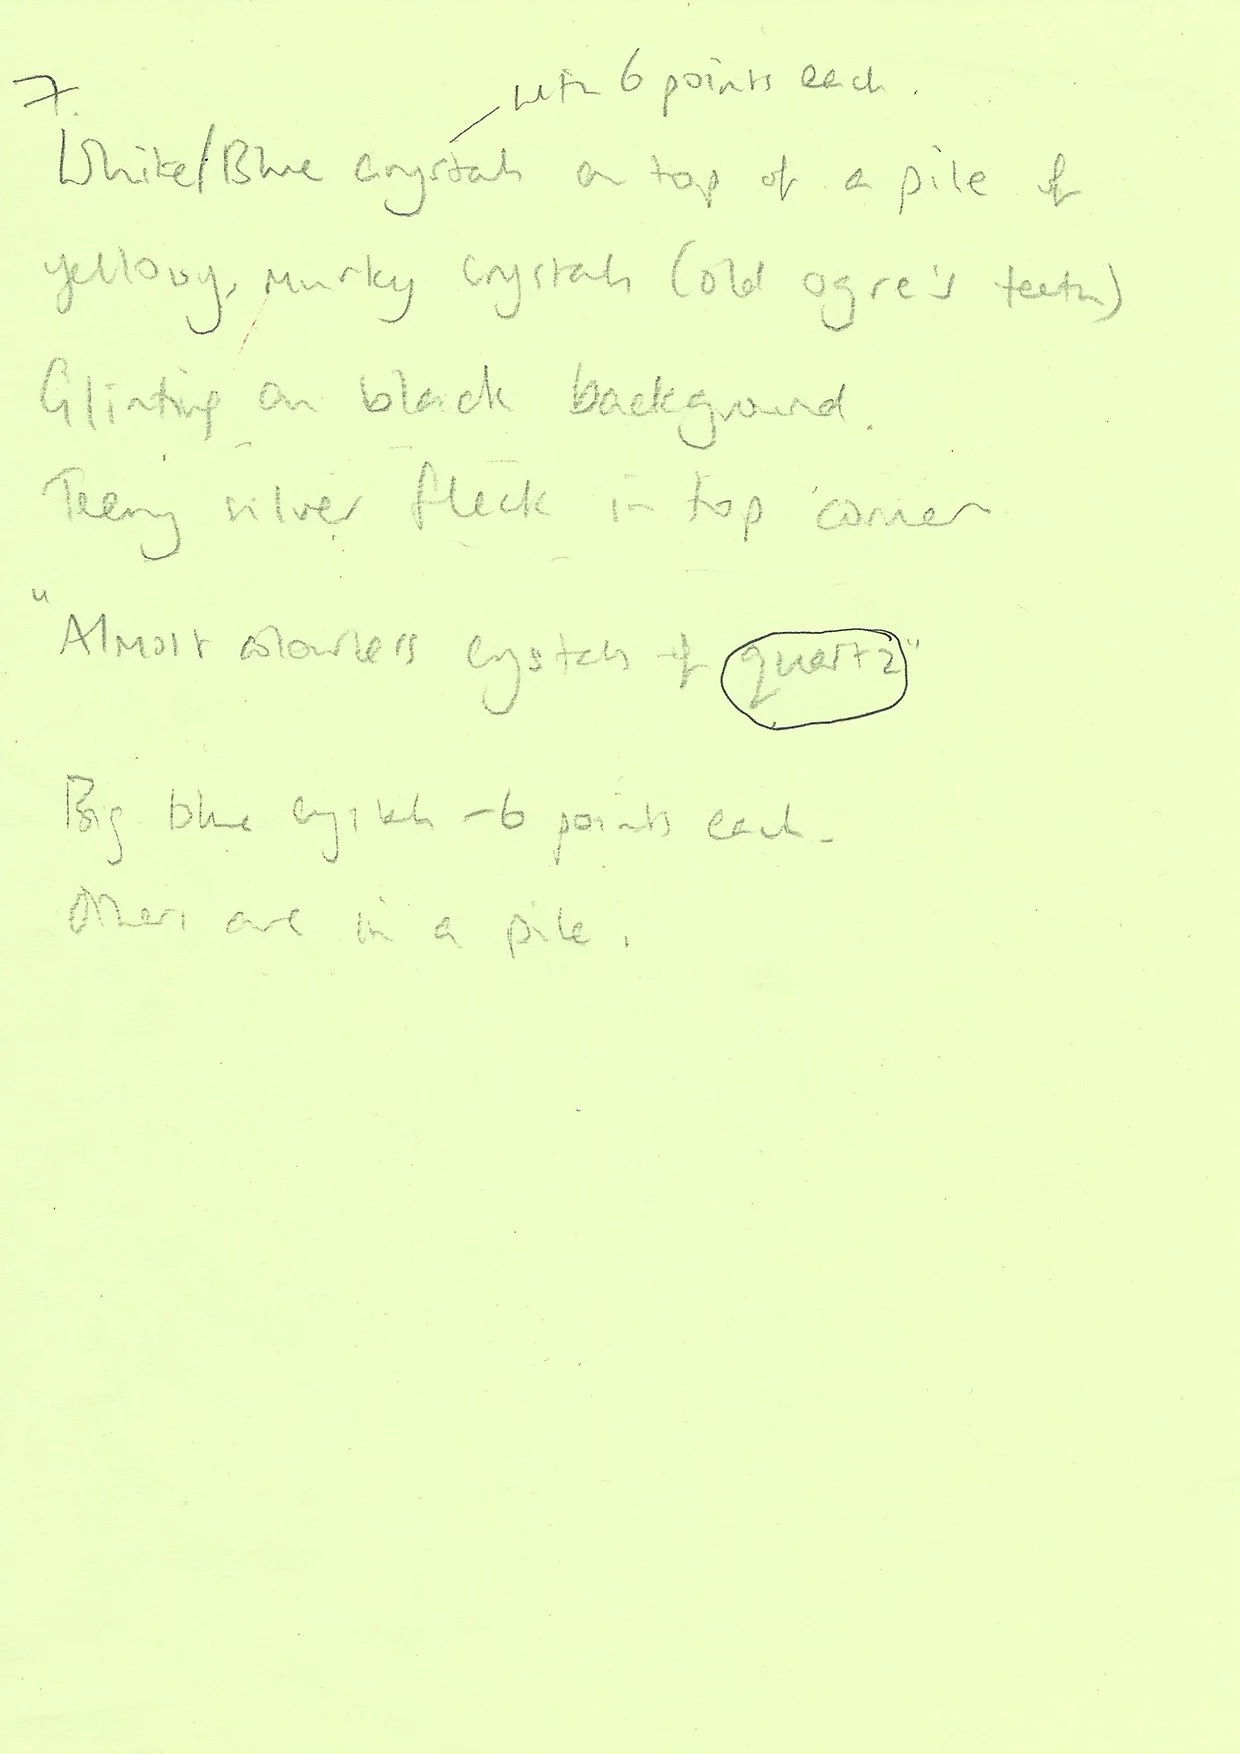 7.
with 6 points each.
White/Blue crystals on top of a pile of
yellowy, murky crystals (old ogre's teeth)
Glinting on black background.
Teeny silver fleck in top corner
"Almost colourless crystals of quartz"
Big blue crystals - 6 points each.
Others are in a pile.